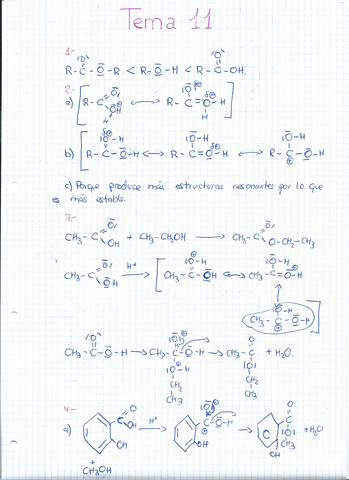 Tema 11
1-
R-C-O-R < R-O-H < R-C-OH.
2-
a) [R-C OH ⟷ R-C=O-H]
b) [R-C-O-H ⟷ R-C=O-H ⟷ R-C-O-H
c) Porque produce más estructuras resonantes por lo que
es más estable.
3-
CH3-C OH + CH3-CH2OH → CH3-C O-CH2-CH3
CH3-C OH H+ → [CH3-C-OH ⟷ CH3-C=O-H
CH3-C-O-H]
CH3-C-O-H → CH3-C-O-H → CH3-C + H2O.
CH2
CH3
CH2
CH3
4-
a) C OH H+ → C-O-H → C + H2O
OH
+
CH3OH
OH
CH3
OH